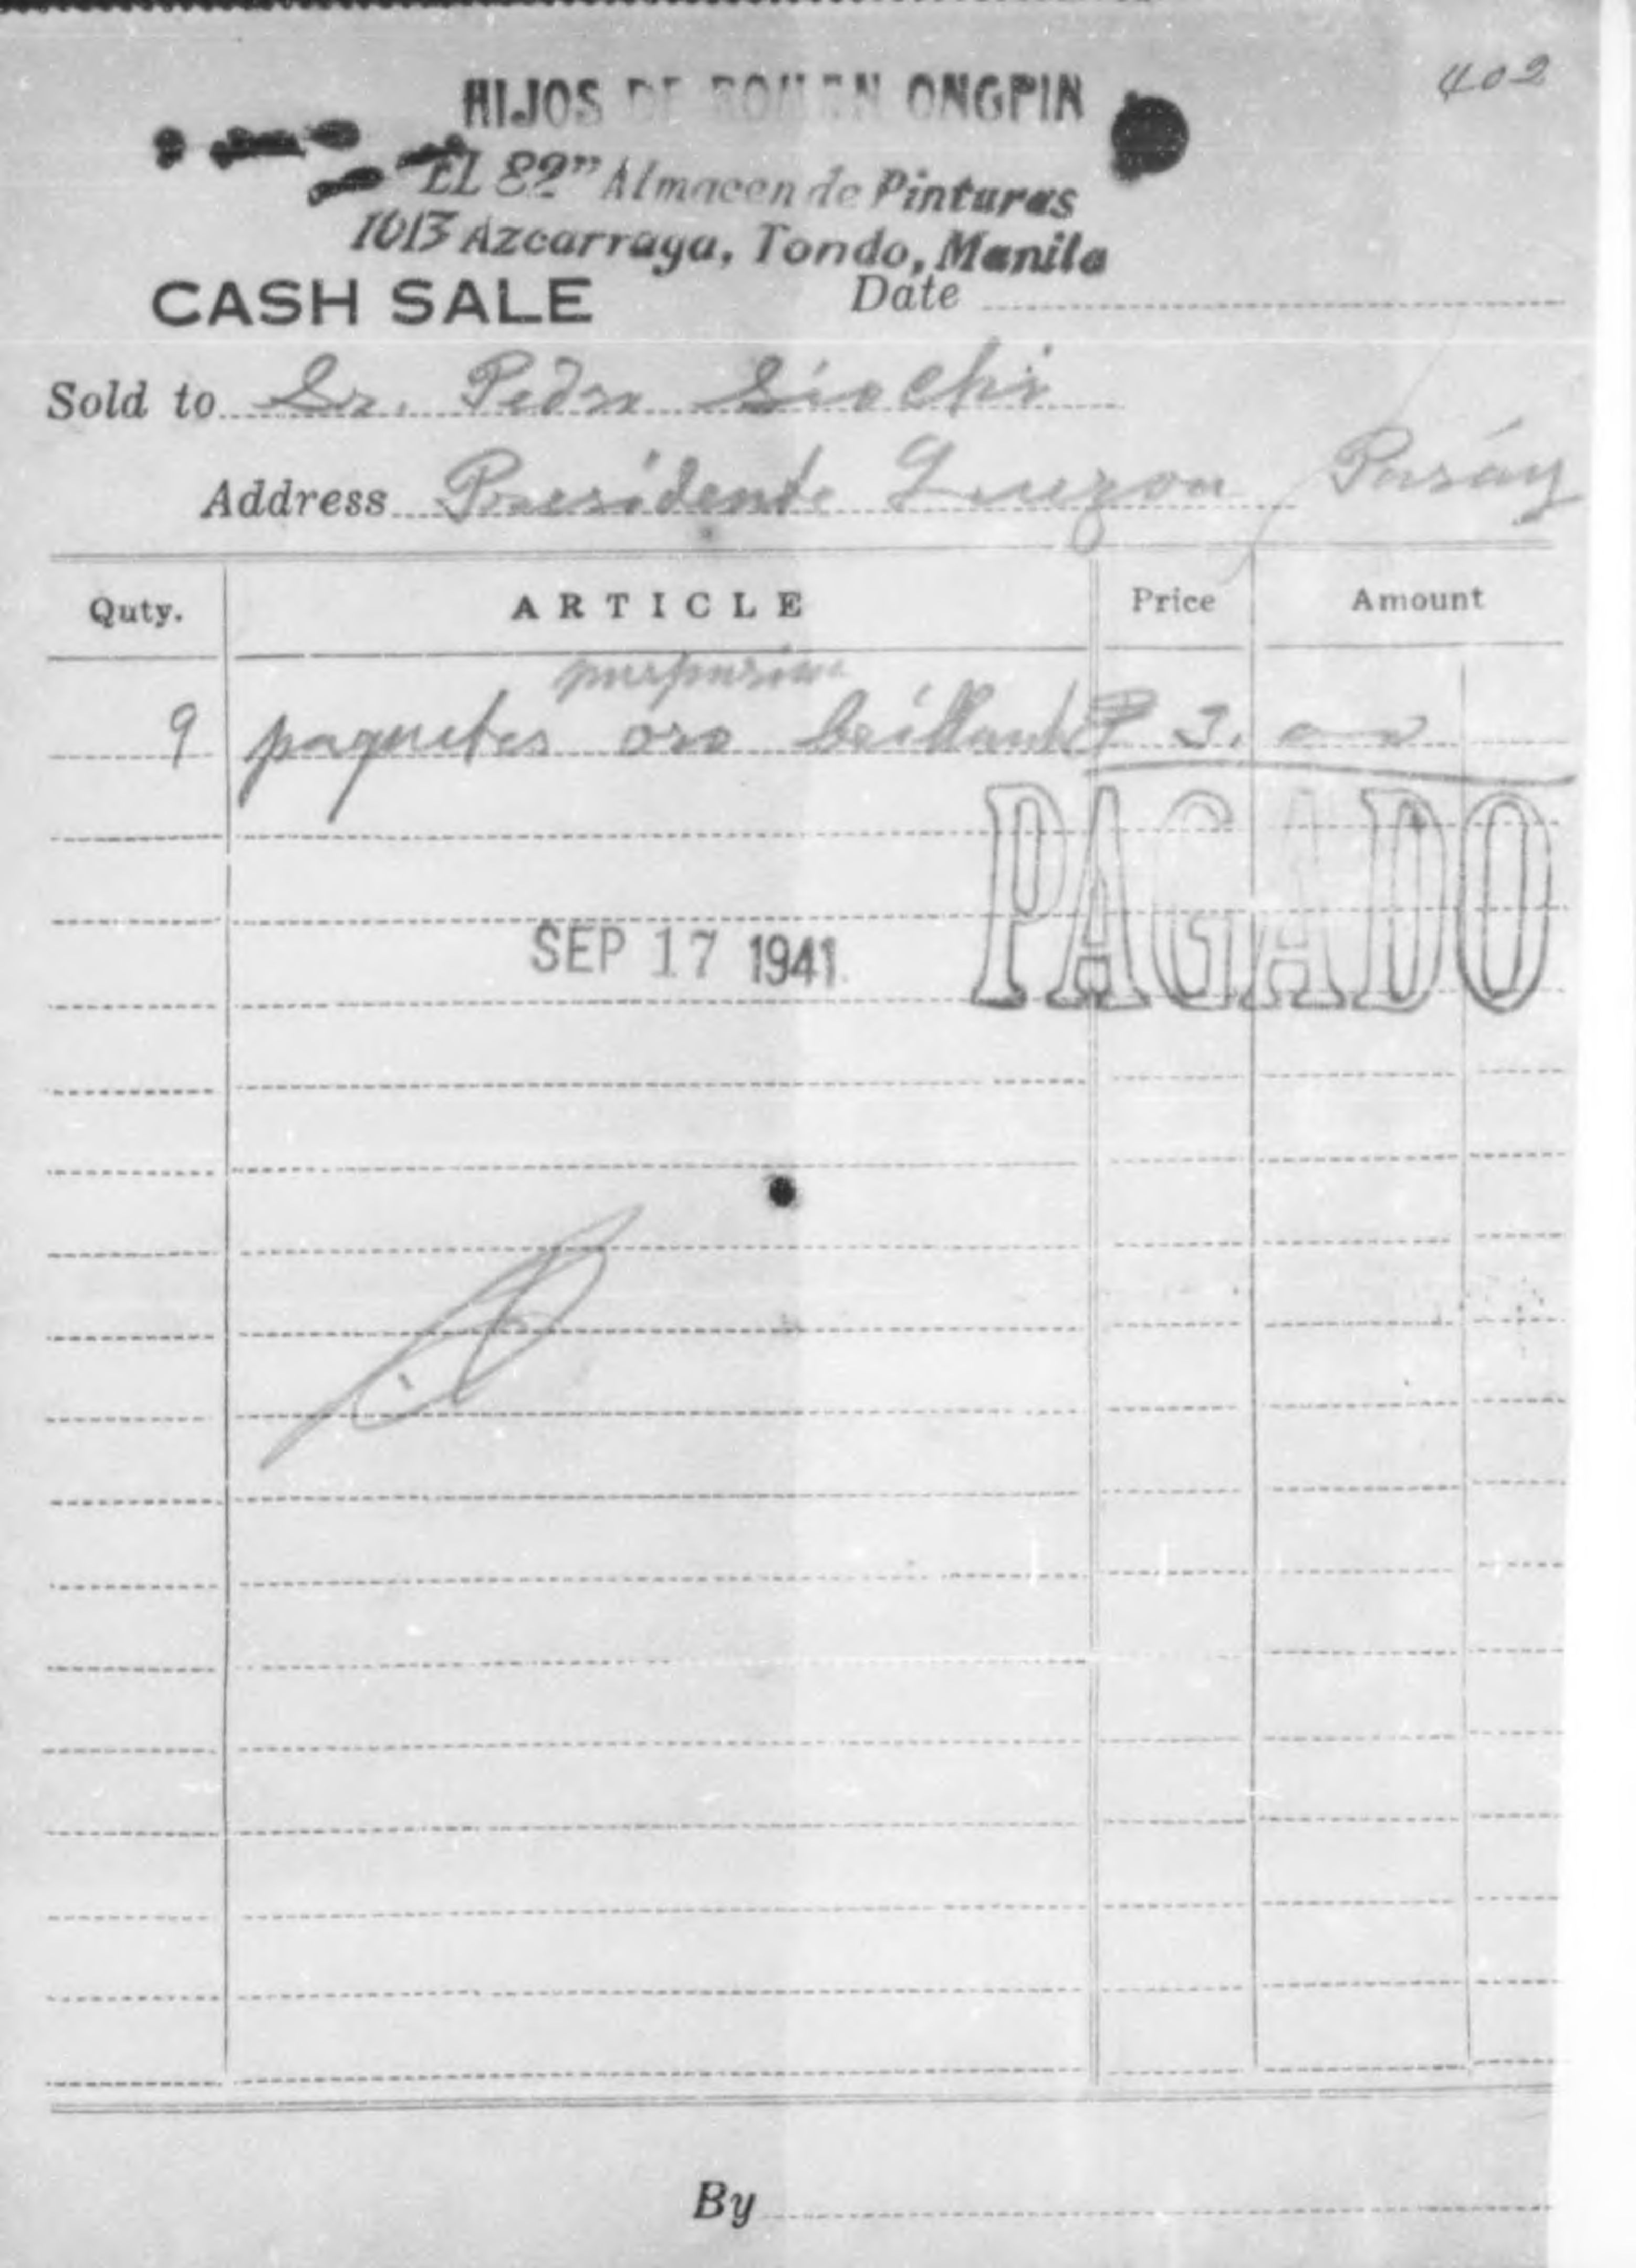 402
HIJOS DE ROMAN ONGPIN
"EL 82" Almacen de Pinturas
1013 Azcarraga, Tondo, Manila
CASH SALE Date
Sold to Sr. Pedro Siochi
Address Presidente Quezon, Parañ
Quty. ARTICLE Price Amount
purpurina
9 paquetes oro brillante ₱ 3.00
PAGADO
SEP 17 1941
By